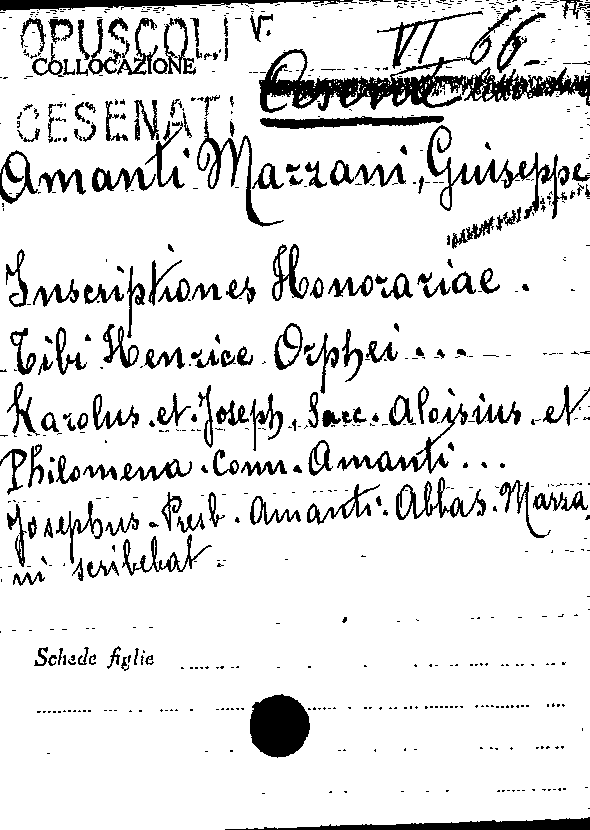 OPUSCOLI V. VI, 66
COLLOCAZIONE
CESENATI Cesena
Amanti Mazzani, Guiseppe
Inscriptiones Honorariae.
Tibi Henrice Orphei...
Karolus. et. Joseph. Sacc. Aloisius. et
Philomena. Conn. Amanti...
Josephus. Presb. Amanti. Abbas. Mazza
ni scribebat.
Schede figlie